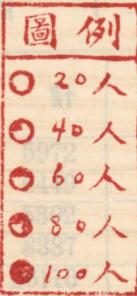 圖例
20人
40人
60人
80人
100人